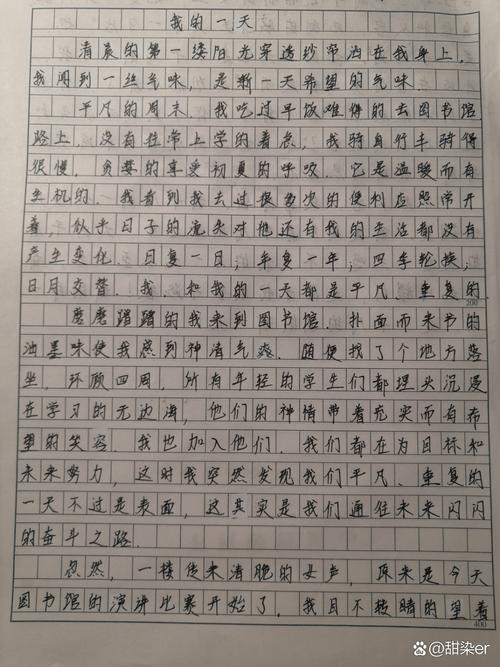 我的一天
清晨的第一缕阳光穿透纱帘洒在我身上,
我闻到一丝气味,是新一天希望的气味.
平凡的周末.我吃过早饭难得的去图书馆
路上,没有往常上学的着急,我骑自行车骑得
很慢.贪婪的享受初夏的呼吸.它是温暖而有
生机的.我看到我去过很多次的便利应照常开
着,似乎日子的流失对他还有我的生活都没有
产生变化.日复一日,年复一年,四季轮换,
日月交替.我.和我的一天都是平凡.重复的
200
磨磨蹭蹭的我来到图书馆.扑面而来书的
油墨味使我感到神清气爽.随便找了个地方落
坐.环顾四周,所有年轻的学生们都埋头沉浸
在学习的无边海,他们的神情带着充实而有希
望的笑容.我也加入他们.我们都在为目标和
未来努力,这时我突然发现我们平凡.重复的
一天不过是表面,这其实是我们通往未来闪闪
的奋斗之路.
忽然,一楼传来清脆的女声,原来是今天
图书馆的演讲比赛开始了.我目不转睛的望着
400
@甜染er